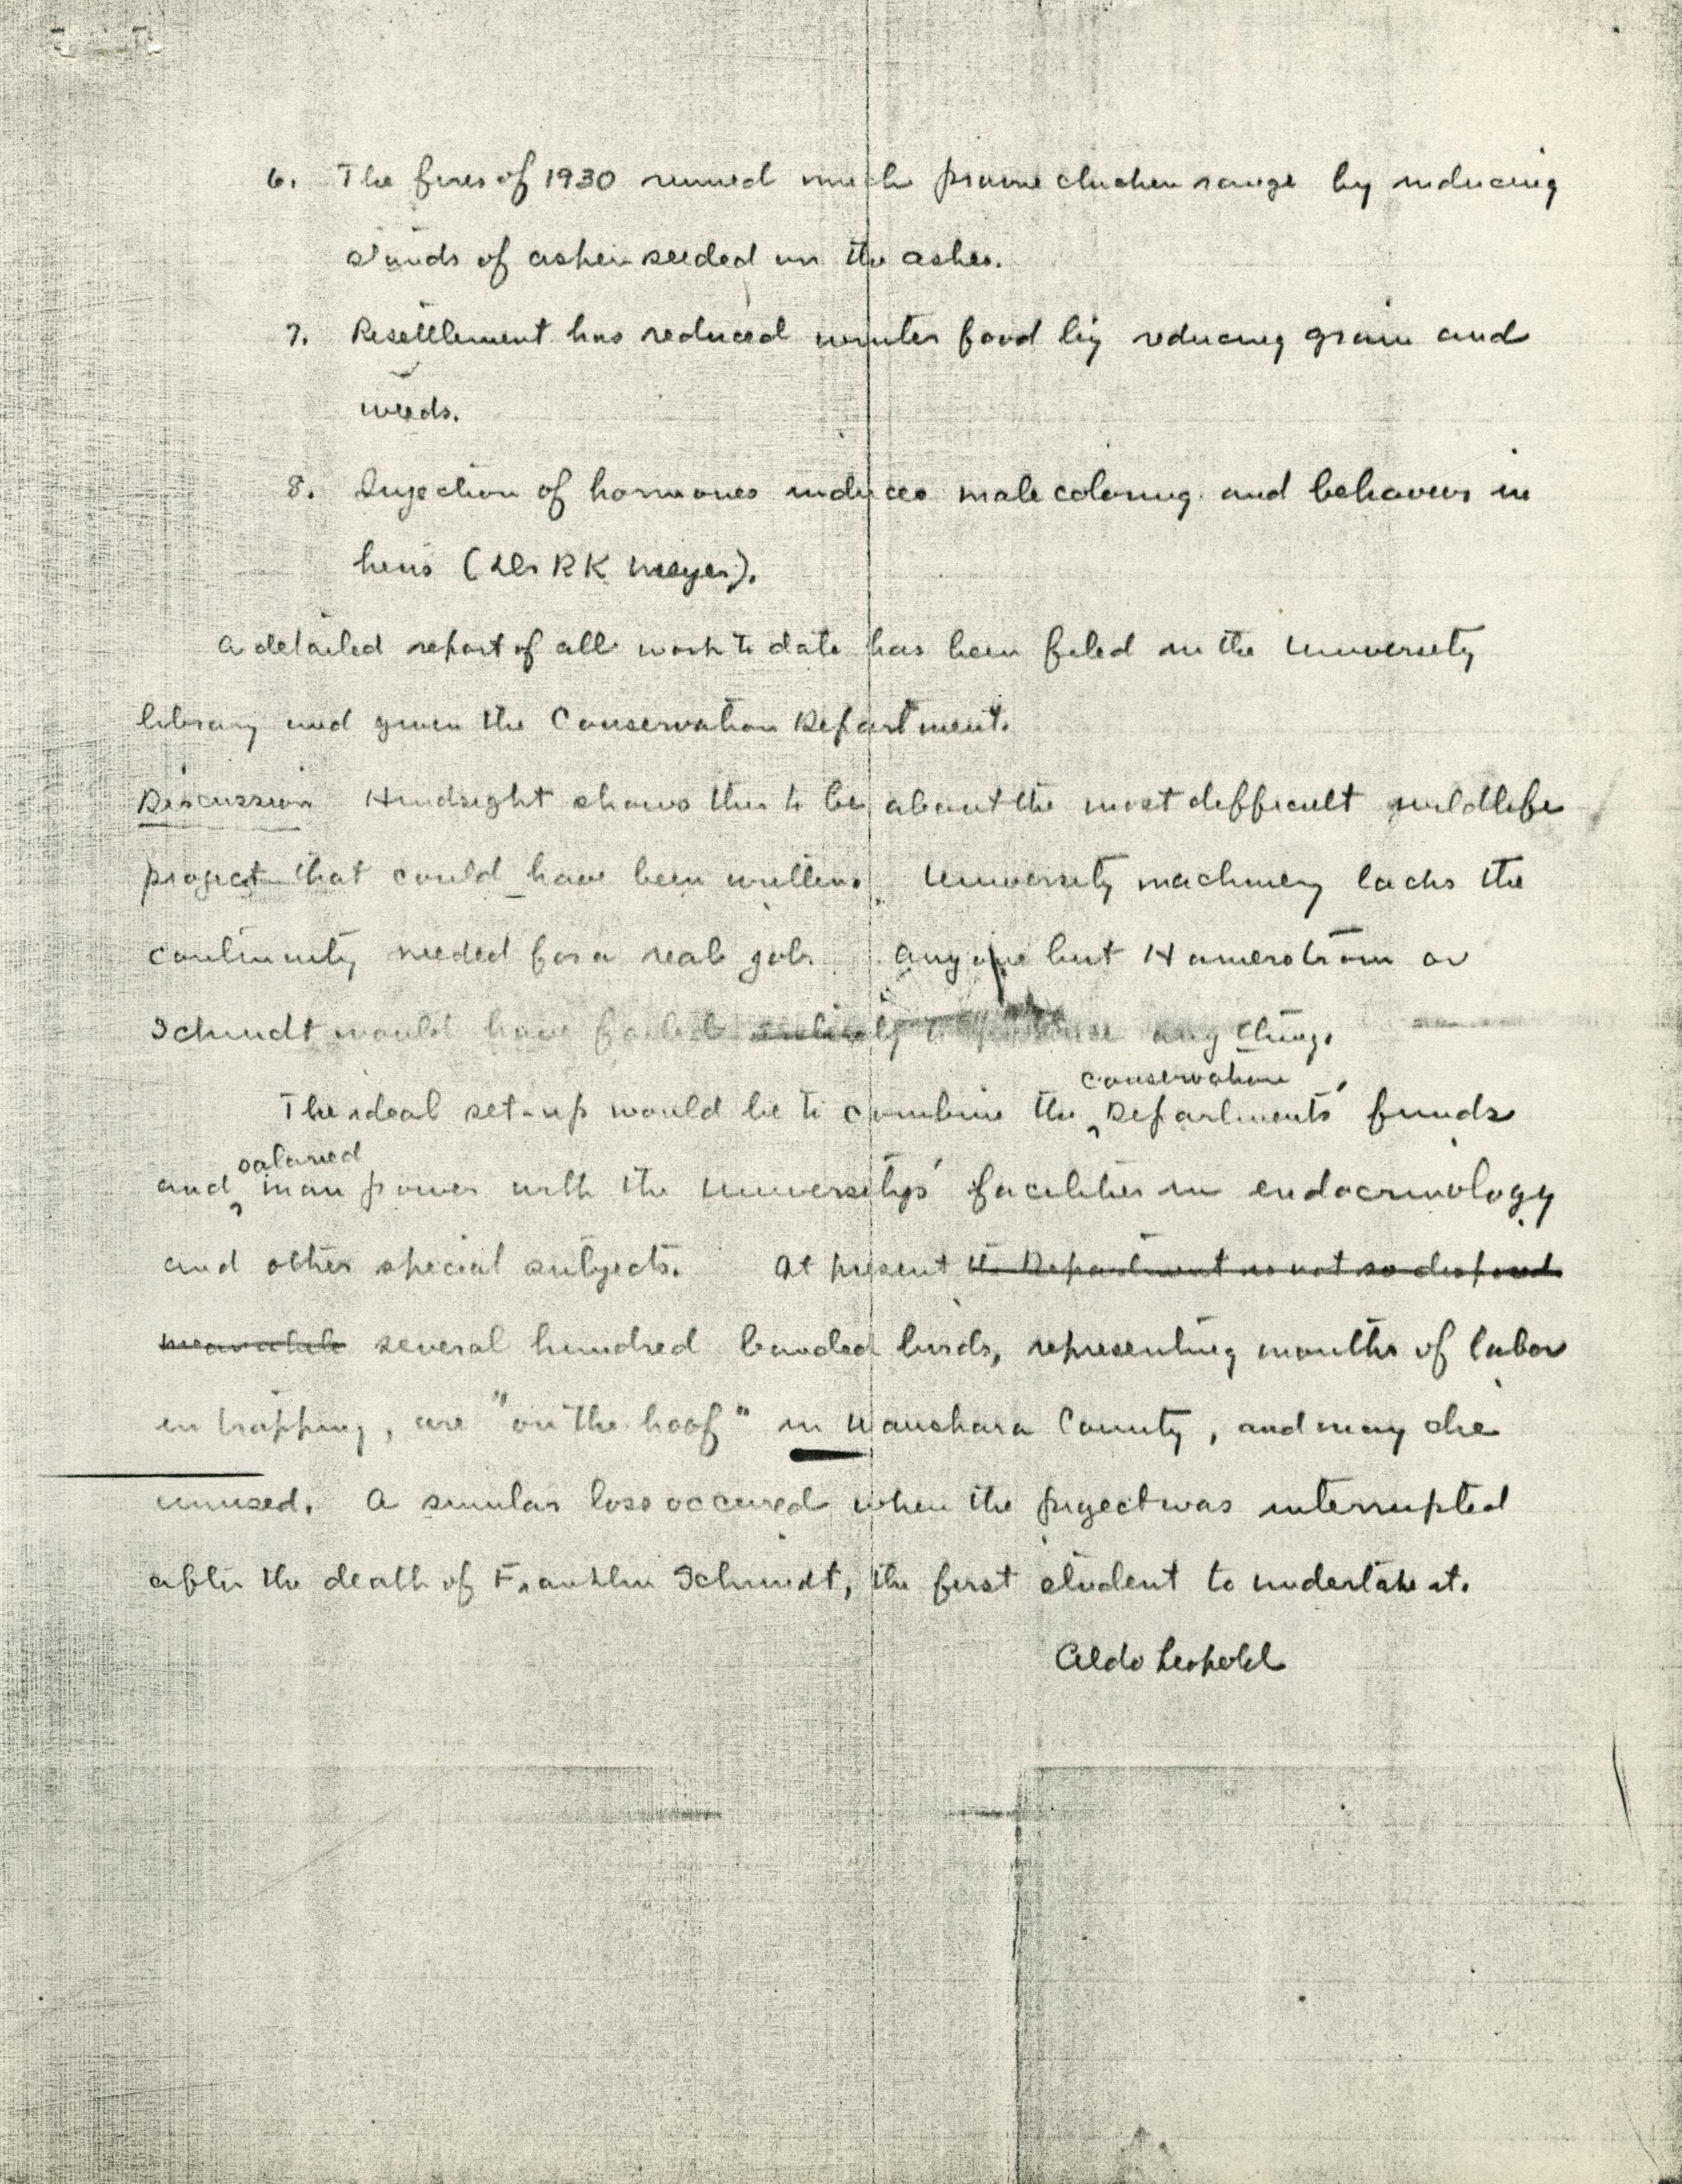 6. The fires of 1930 ruined much prairie chicken range by inducing
stands of aspen seeded in the ashes.
7. Resettlement has reduced winter food by reducing grain and
weeds.
8. Injection of hormones induces male coloring and behavior in
hens (Dr RK Meyer).
A detailed report of all work to date has been filed in the University
library and given the Conservation Department.
Discussion Hindsight shows this to be about the most difficult wildlife
project that could have been written. University machinery lacks the
continuity needed for a real job. Anyone but Hamerstrom or
Schmidt would have failed to any thing.
conservation
The ideal set-up would be to combine the Departments' funds
salaried
and man power with the University's facilities in endocrinology
and other special subjects. At present the Department is not so disposed
meanwhile several hundred banded birds, representing months of labor
in trapping, are "on the hoof" in Waushara County, and may die
unused. A similar loss occured when the project was interrupted
after the death of Franklin Schmidt, the first student to undertake it.
Aldo Leopold